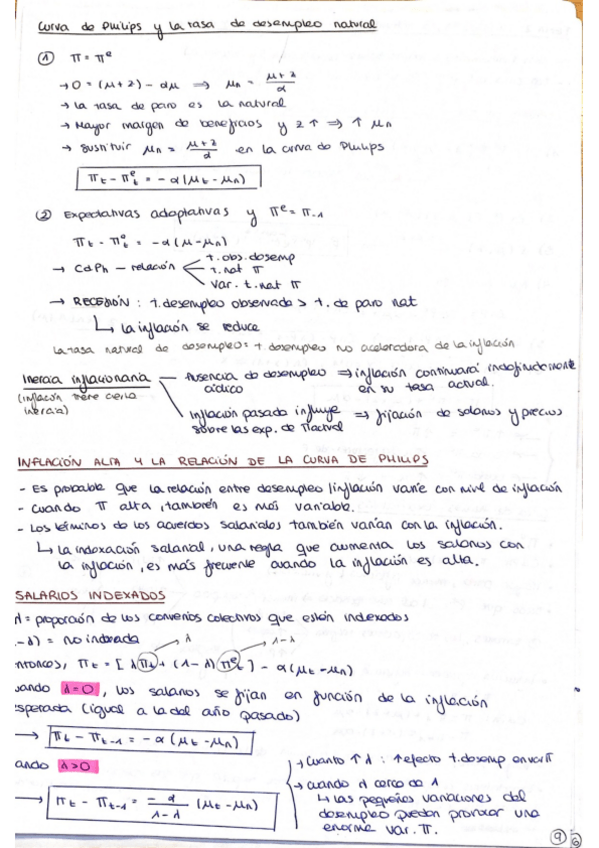 Curva de Philips y la tasa de desempleo natural
① π = πᵉ
→ 0 = (μ + z) - αμ ⟹ μn = μ + z / α
→ la tasa de paro es la natural
→ Mayor margen de beneficios y z ↑ ⟹ ↑ μn
→ Sustituir μn = μ + z / α en la curva de Philips
πt - πᵉt = -α (μt - μn)
② Expectativas adaptativas y πᵉ = π-1
πt - πᵉt = -α (μ - μn)
t. obs. desemp
→ CdPh - relación t. nat π
var. t. nat π
→ RECESIÓN : t. desempleo observado > t. de paro nat
↳ la inflación se reduce
La tasa natural de desempleo = t desempleo no aceleradora de la inflación
Inercia inflacionaria — Ausencia de desempleo ⟹ inflación continuará indefinidamente
(inflación tiene cierta inercia) cíclico en su tasa actual.
Inflación pasada influye ⟹ fijación de salarios y precios
sobre las exp. de π actual
INFLACIÓN ALTA Y LA RELACIÓN DE LA CURVA DE PHILIPS
- Es probable que la relación entre desempleo / inflación varíe con nivel de inflación
- Cuando π alta, también es más variable.
- Los términos de los acuerdos salariales también varían con la inflación.
↳ la indexación salarial, una regla que aumenta los salarios con
la inflación, es más frecuente cuando la inflación es alta.
SALARIOS INDEXADOS
λ = proporción de los convenios colectivos que están indexados
1-λ) = no indexada λ 1-λ
ntonces, πt = [λ πt + (1-λ) πᵉt] - α(μt - μn)
uando λ=0, los salarios se fijan en función de la inflación
esperada (igual a la del año pasado)
→ πt - πt-1 = -α (μt - μn)
ando λ>0
→ πt - πt-1 = -α / 1-λ (μt - μn)
→ Cuanto ↑ λ : ↑ efecto t. desemp en var π
→ cuando λ cerca de 1
↳ las pequeñas variaciones del
desempleo pueden provocar una
enorme var. π.
9
6